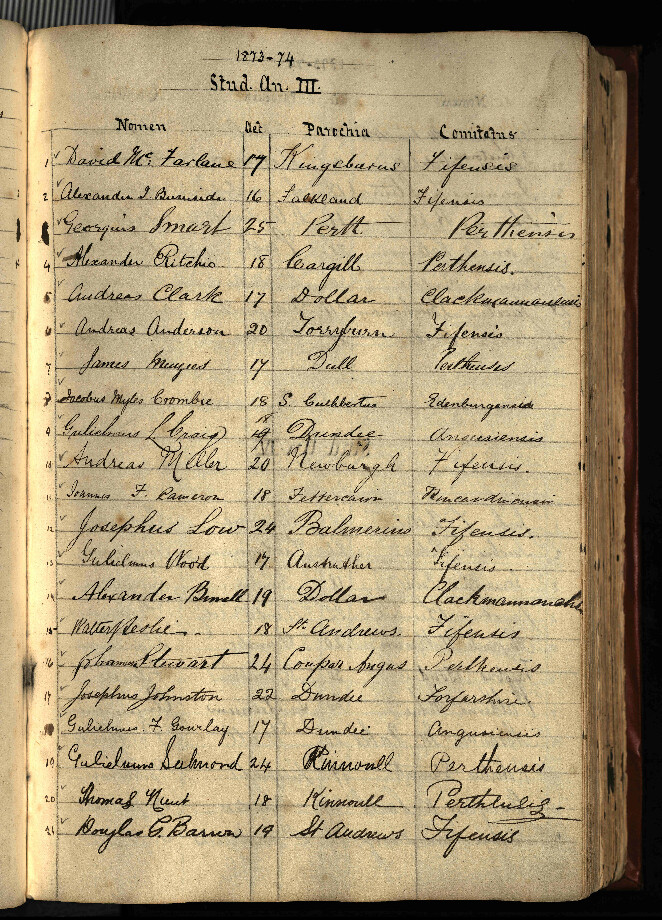 1873-74
Stud. An. III.
Nomen Aet Parochia Comitatus
1 David Mc. Farlane 17 Kingsbarns Fifensis
2 Alexander J. Burnside 16 Falkland Fifensis
Georgius Smart 25 Perth Perthensis
4 Alexander Ritchie 18 Cargill Perthensis.
5 Andreas Clark 17 Dollar Clackmannanensis
6 Andreas Anderson 20 Torryburn Fifensis
7 James 17 Dull Perthensis
Jacobus Myles Crombie 18 S. Cuthbertus
9 Gulielmus L Craig 19 Dundee Angusiensis
10 Andreas Miller 20 Newburgh Fifensis.
11 Joannes F. Cameron 18 Fettercairn
12 Josephus Low 24 Balmerino Fifensis.
13 Gulielmus Wood 17 Anstruther Fifensis
14 Alexander 19 Dollar
15 Walter Leslie 18 St. Andrews. Fifensis
16 Stewart 24 Coupar Angus Perthensis
17 Josephus Johnston 22 Dundee Forfarshire.
18 Gulielmus F. Gourlay 17 Dundee Angusiensis
19 Gulielmus 24 Kinnoull Perthensis
20 Thomas Hunt 18 Kinnoull Perthensis
21 Douglas G. Barron 19 St Andrews Fifensis